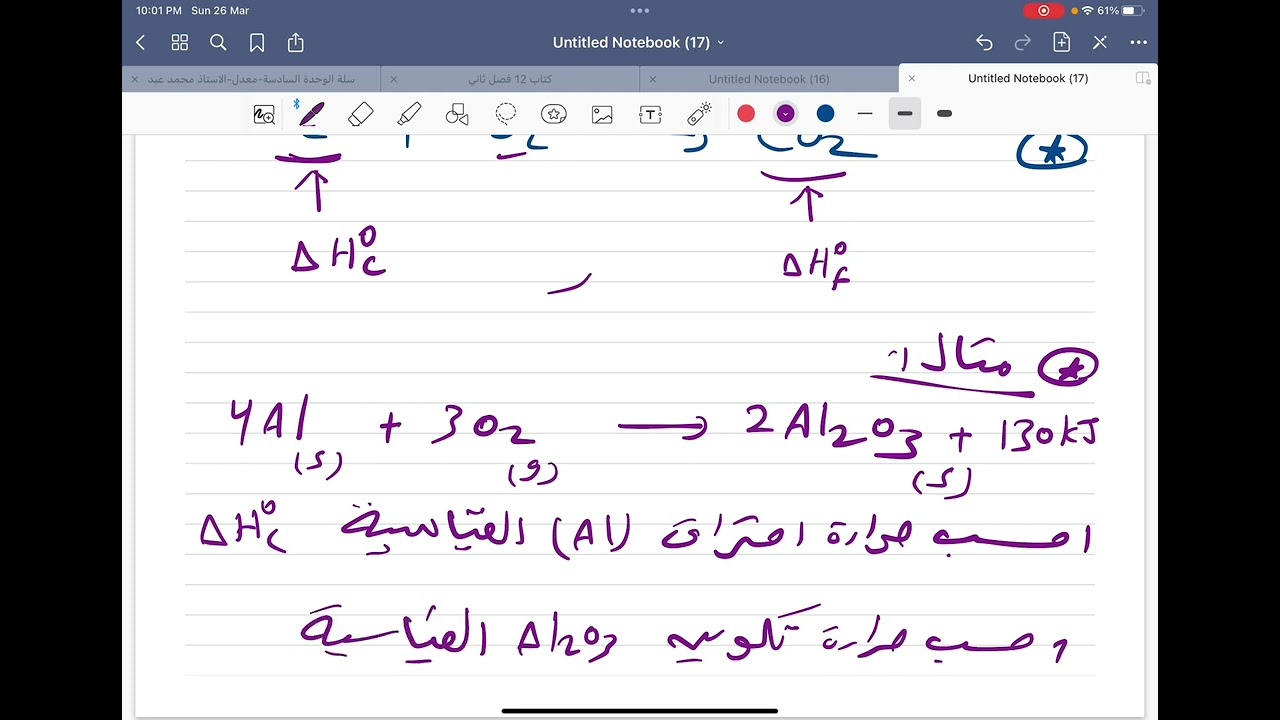 10:01 PM Sun 26 Mar
61%
Untitled Notebook (17)
سلة الوحدة السادسة-معدل-الاستاذ محمد عبد
كتاب 12 فصل ثاني
Untitled Notebook (16)
Untitled Notebook (17)
CO2
ΔH°c
ΔH°f
مثال 1
4Al(s) + 3O2(g) → 2Al2O3(s) + 130kJ
احسب حرارة احتراق (Al) القياسية ΔH°c
احسب حرارة تكوين Al2O3 القياسية